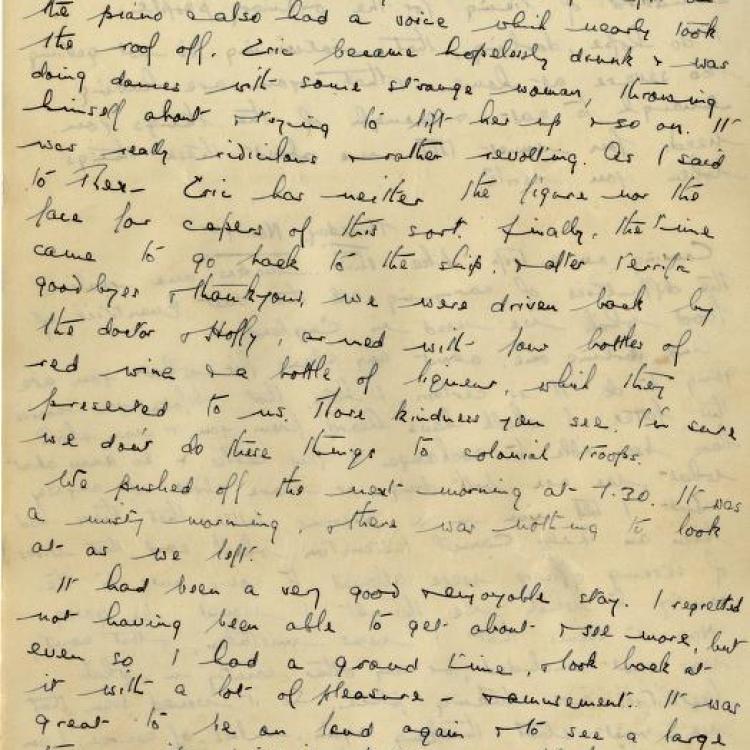 the piano & also had a voice which nearly took
the roof off. Eric became hopelessly drunk & was
doing dances with some strange woman, throwing
himself about & trying to lift her up & so on. It
was really ridiculous & rather revolting. As I said
to Eric has neither the figure nor the
face for capers of this sort. Finally, the time
came to go back to the ship, & after terrific
goodbyes & thankyous, we were driven back by
the doctor & Holly, armed with four bottles of
red wine & a bottle of liqueur, which they
presented to us. More kindness you see. I'm sure
we don't do these things to colonial troops.
We pushed off the next morning at 7.30. It was
a misty morning, & there was nothing to look
at as we left.
It had been a very good & enjoyable stay. I regretted
not having been able to get about & see more, but
even so, I had a grand time, & look back at
it with a lot of pleasure - & amusement. It was
great to be on land again & to see a large